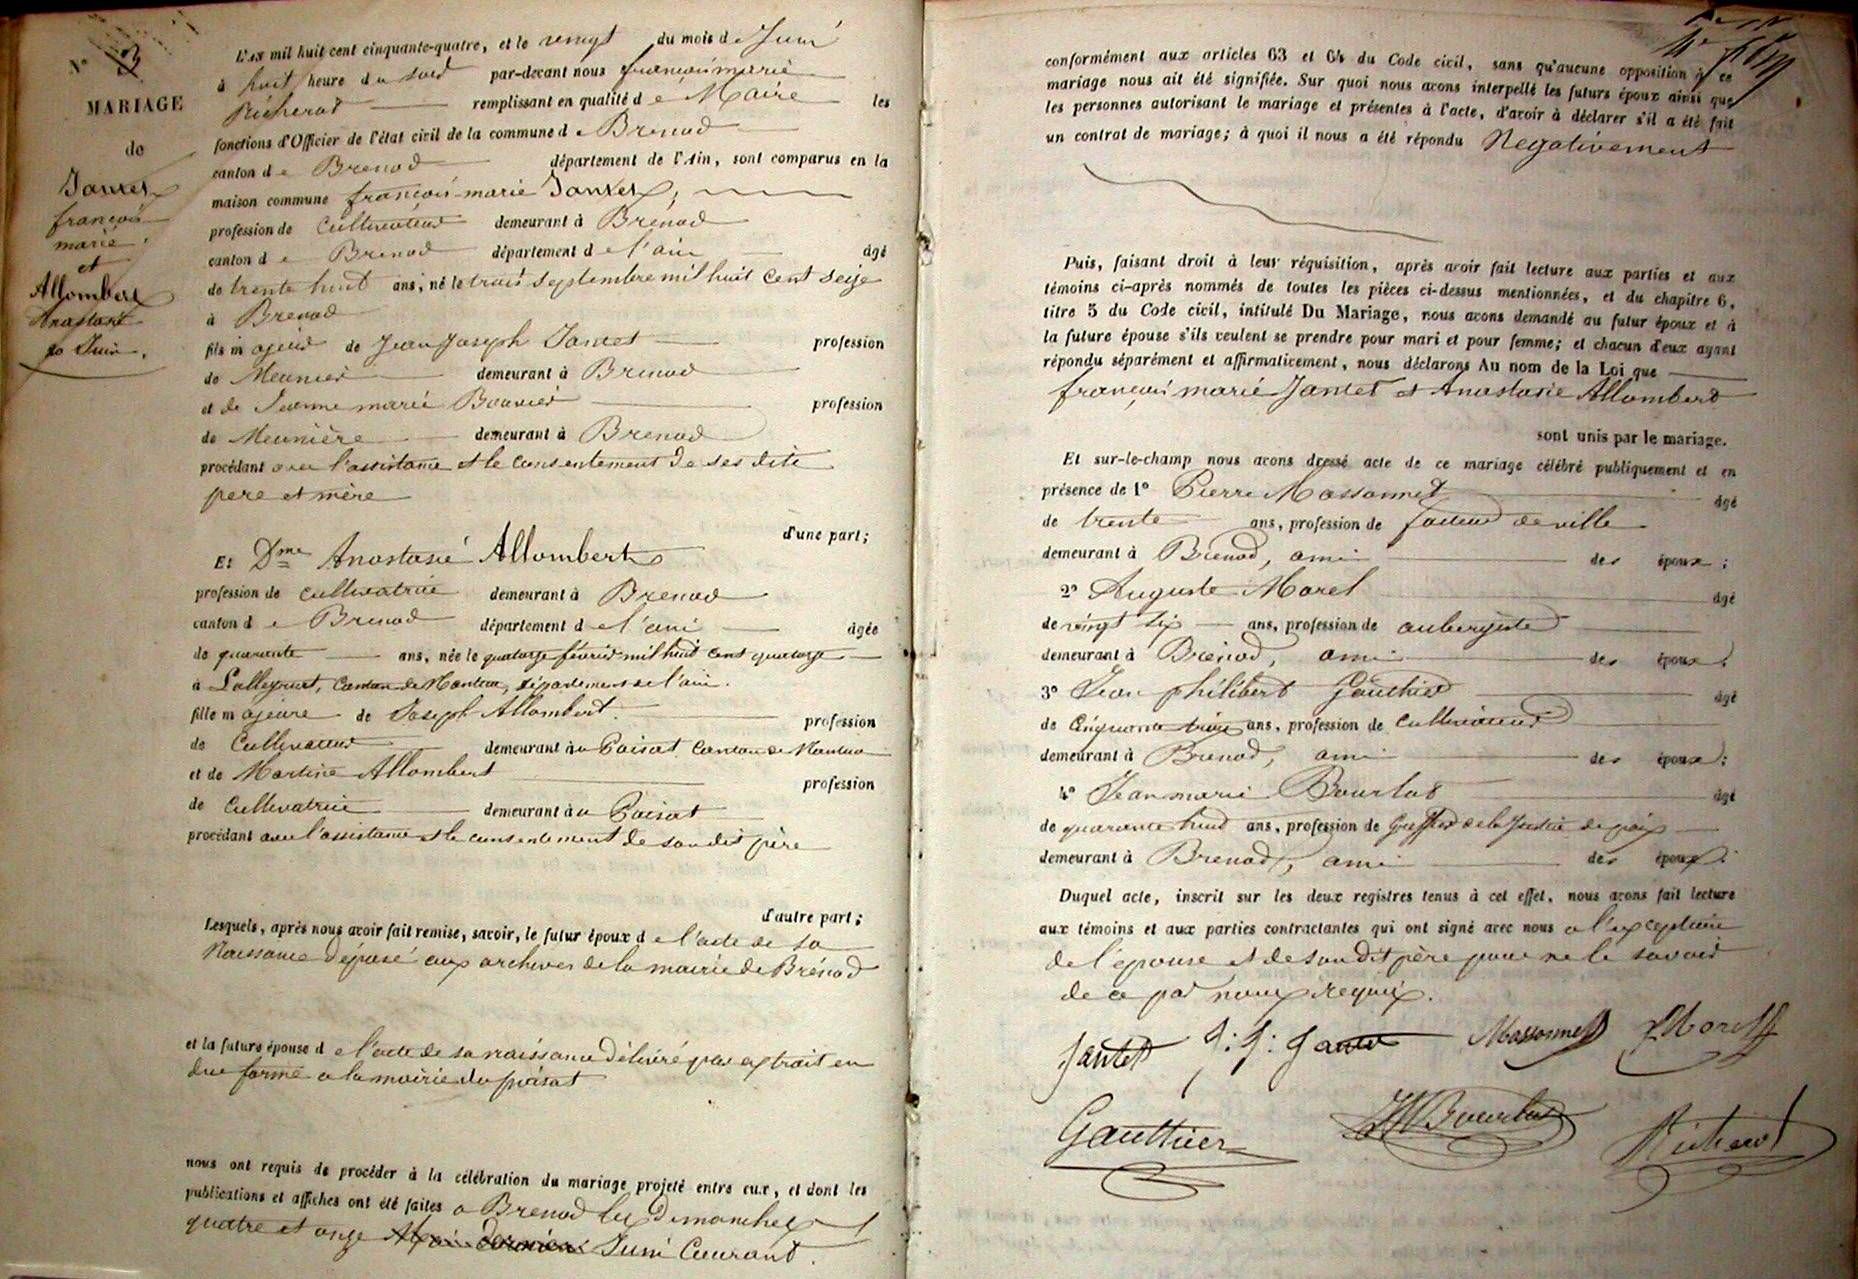 N° 3
MARIAGE
de
Jantet
françois
marie
et
Allombert
Anastasie
20 Juin.
L'AN mil huit cent cinquante-quatre, et le vingt du mois de Juin
à huit heure du soir par-devant nous françois marie
Richerot remplissant en qualité de Maire les
fonctions d'Officier de l'état civil de la commune de Brenod
canton de Brenod département de l'Ain, sont comparus en la
maison commune françois marie Jantet,
profession de Cultivateur demeurant à Brénod
canton de Brenod département de l'ain âgé
de trente huit ans, né le trois septembre mil huit cent seize
à Brenod
fils majeur de Jean Joseph Jantet profession
de Meunier demeurant à Brenod
et de Jeanne marie Bouvier profession
de Meunière demeurant à Brenod
procédant avec l'assistance et le consentement de ses dits
pere et mère
d'une part;
Et Dme Anastasie Allombert
profession de cultivatrice demeurant à Brenod
canton de Brenod département de l'ain âgée
de quarante ans, née le quatorze février mil huit cent quatorze
à Lalleyriat, Canton de Nantua, département de l'ain.
fille majeure de Joseph Allombert profession
de Cultivateur demeurant au Poisat Canton de Nantua
et de Martine Allombert profession
de Cultivatrice demeurant au Poisat
procédant avec l'assistance et le consentement de son dit père
d'autre part;
Lesquels, après nous avoir fait remise, savoir, le futur époux de l'acte de sa
Naissance déposé aux archives de la mairie de Brénod
et la future épouse de l'acte de sa naissance délivré par extrait en
due forme a la mairie du poisat
nous ont requis de procéder à la célébration du mariage projeté entre eux, et dont les
publications et affiches ont été faites a Brenod les Dimanches
quatre et onze Mai dernier Juin Courant.
conformément aux articles 63 et 64 du Code civil, sans qu'aucune opposition à ce
mariage nous ait été signifiée. Sur quoi nous avons interpellé les futurs époux ainsi que
les personnes autorisant le mariage et présentes à l'acte, d'avoir à déclarer s'il a été fait
un contrat de mariage; à quoi il nous a été répondu Negativement
Puis, faisant droit à leur réquisition, après avoir fait lecture aux parties et aux
témoins ci-après nommés de toutes les pièces ci-dessus mentionnées, et du chapitre 6,
titre 5 du Code civil, intitulé Du Mariage, nous avons demandé au futur époux et à
la future épouse s'ils veulent se prendre pour mari et pour femme; et chacun d'eux ayant
répondu séparément et affirmativement, nous déclarons Au nom de la Loi que
françois marie Jantet et Anastasie Allombert
sont unis par le mariage.
Et sur-le-champ nous avons dressé acte de ce mariage célébré publiquement et en
présence de 1° Pierre Massonnet âgé
de trente ans, profession de facteur de ville
demeurant à Brenod, ami des époux;
2° Auguste Morel âgé
de vingt six ans, profession de aubergiste
demeurant à Brénod, ami des époux;
3° Jean philibert Gauthier âgé
de Cinquante trois ans, profession de Cultivateur
demeurant à Brenod, ami des époux;
4° Jean marie Bourlot âgé
de quarante huit ans, profession de Greffier de la Justice de paix
demeurant à Brenod, ami des époux.
Duquel acte, inscrit sur les deux registres tenus à cet effet, nous avons fait lecture
aux témoins et aux parties contractantes qui ont signé avec nous a l'exception
de l'épouse et de son dit père pour ne le savoir
de ce par nous requis.
Jantet J: J: Jantet Massonnet Morel
Gauthier JM Bourlot Richerot